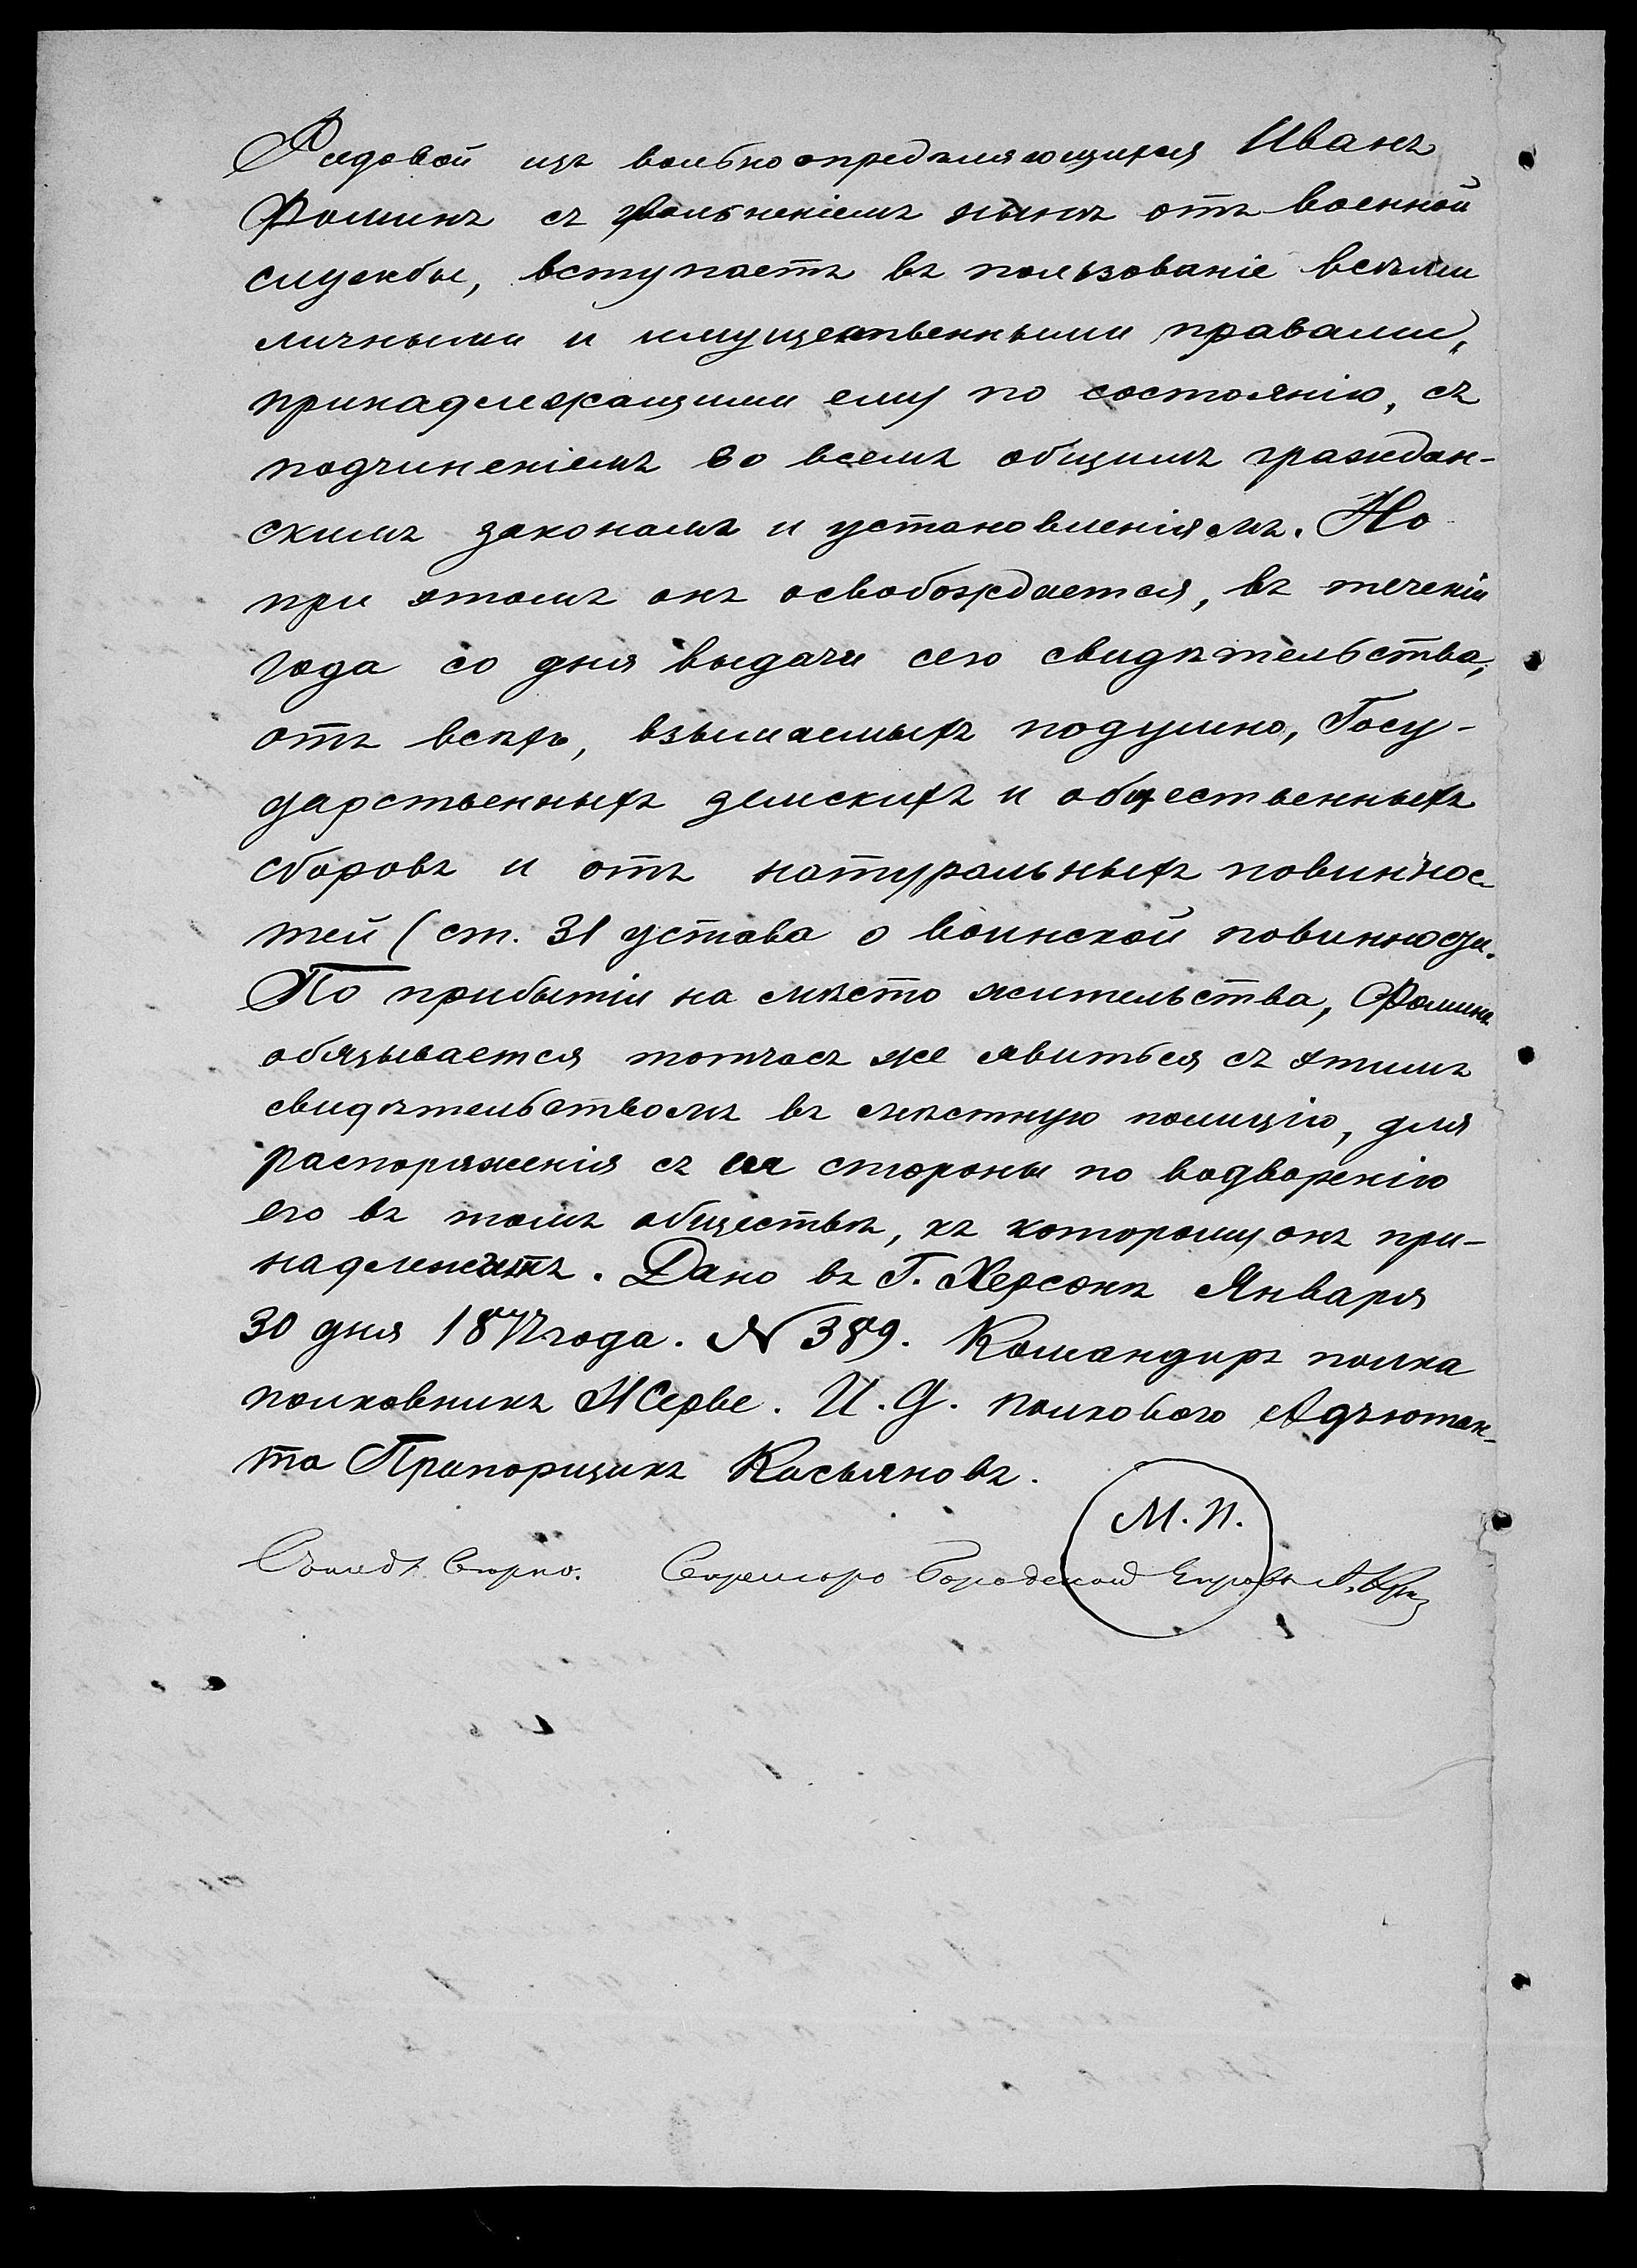 Рядовой изъ вольноопредѣляющихся Иванъ
Фоминъ съ увольненіемъ нынѣ отъ военной
службы, вступаетъ въ пользованіе всѣми
личными и имущественными правами,
принадлежащими ему по состоянію, съ
подчиненіемъ во всемъ общимъ граждан-
скимъ законамъ и установленіямъ. Но
при этомъ онъ освобождается, въ теченіи
года со дня выдачи сего свидѣтельства,
отъ всѣхъ, взымаемыхъ подушно, Госу-
дарственныхъ земскихъ и общественныхъ
сборовъ и отъ натуральныхъ повиннос-
тей (ст. 31 устава о воинской повинности.
По прибытіи на мѣсто жительства, Фоминъ
обязывается тотчасъ же явиться съ этимъ
свидѣтельствомъ въ мѣстную полицію, для
распоряженія съ ея стороны по водворенію
его въ томъ обществѣ, къ которому онъ при-
надлежитъ. Дано въ Г. Херсонѣ Января
30 дня 1877 года. N 389. Командиръ полка
полковникъ Жерве. И. Д. полковаго Адъютан-
та Прапорщикъ Касьяновъ.
М. П.
Секретарь Городской Управы